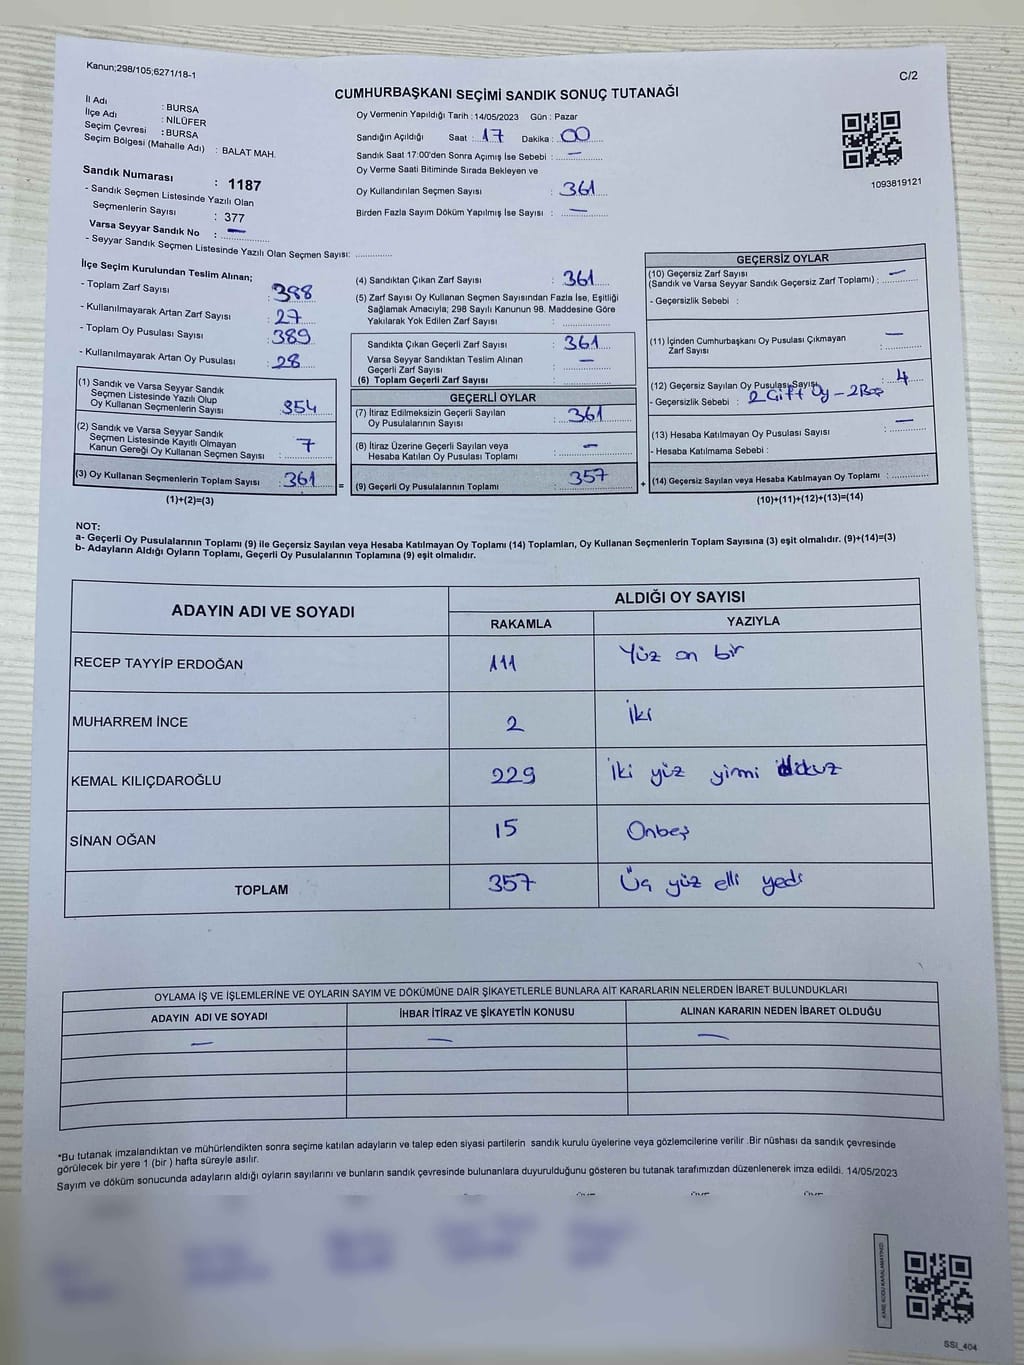 Kanun;298/105;6271/18-1
C/2
CUMHURBAŞKANI SEÇİMİ SANDIK SONUÇ TUTANAĞI
İl Adı : BURSA
İlçe Adı : NİLÜFER
Seçim Çevresi : BURSA
Seçim Bölgesi (Mahalle Adı) : BALAT MAH.
Sandık Numarası : 1187
- Sandık Seçmen Listesinde Yazılı Olan
Seçmenlerin Sayısı : 377
Varsa Seyyar Sandık No : —
- Seyyar Sandık Seçmen Listesinde Yazılı Olan Seçmen Sayısı: ..............
Oy Vermenin Yapıldığı Tarih : 14/05/2023 Gün : Pazar
Sandığın Açıldığı Saat : 17 Dakika : 00
Sandık Saat 17:00'den Sonra Açımış İse Sebebi : —
Oy Verme Saati Bitiminde Sırada Bekleyen ve
Oy Kullandırılan Seçmen Sayısı : 361
Birden Fazla Sayım Döküm Yapılmış İse Sayısı : —
1093819121
İlçe Seçim Kurulundan Teslim Alınan;
- Toplam Zarf Sayısı : 388
- Kullanılmayarak Artan Zarf Sayısı : 27
- Toplam Oy Pusulası Sayısı : 389
- Kullanılmayarak Artan Oy Pusulası : 28
(1) Sandık ve Varsa Seyyar Sandık
Seçmen Listesinde Yazılı Olup
Oy Kullanan Seçmenlerin Sayısı : 354
(2) Sandık ve Varsa Seyyar Sandık
Seçmen Listesinde Kayıtlı Olmayan
Kanun Gereği Oy Kullanan Seçmen Sayısı : 7
(3) Oy Kullanan Seçmenlerin Toplam Sayısı : 361
(1)+(2)=(3)
(4) Sandıktan Çıkan Zarf Sayısı : 361
(5) Zarf Sayısı Oy Kullanan Seçmen Sayısından Fazla İse, Eşitliği
Sağlamak Amacıyla; 298 Sayılı Kanunun 98. Maddesine Göre
Yakılarak Yok Edilen Zarf Sayısı : ..............
Sandıkta Çıkan Geçerli Zarf Sayısı : 361
Varsa Seyyar Sandıktan Teslim Alınan
Geçerli Zarf Sayısı : —
(6) Toplam Geçerli Zarf Sayısı : ..............
GEÇERLİ OYLAR
(7) İtiraz Edilmeksizin Geçerli Sayılan
Oy Pusulalarının Sayısı : 361
(8) İtiraz Üzerine Geçerli Sayılan veya
Hesaba Katılan Oy Pusulası Toplamı : —
= (9) Geçerli Oy Pusulalarının Toplamı : 357
GEÇERSİZ OYLAR
(10) Geçersiz Zarf Sayısı
(Sandık ve Varsa Seyyar Sandık Geçersiz Zarf Toplamı) : —
- Geçersizlik Sebebi :
(11) İçinden Cumhurbaşkanı Oy Pusulası Çıkmayan
Zarf Sayısı : —
(12) Geçersiz Sayılan Oy Pusulası Sayısı : 4
- Geçersizlik Sebebi : 2 Çift Oy – 2 Boş
(13) Hesaba Katılmayan Oy Pusulası Sayısı : —
- Hesaba Katılmama Sebebi :
+ (14) Geçersiz Sayılan veya Hesaba Katılmayan Oy Toplamı : ..............
(10)+(11)+(12)+(13)=(14)
NOT:
a- Geçerli Oy Pusulalarının Toplamı (9) ile Geçersiz Sayılan veya Hesaba Katılmayan Oy Toplamı (14) Toplamları, Oy Kullanan Seçmenlerin Toplam Sayısına (3) eşit olmalıdır. (9)+(14)=(3)
b- Adayların Aldığı Oyların Toplamı, Geçerli Oy Pusulalarının Toplamına (9) eşit olmalıdır.
ADAYIN ADI VE SOYADI ALDIĞI OY SAYISI
RAKAMLA YAZIYLA
RECEP TAYYİP ERDOĞAN 111 Yüz on bir
MUHARREM İNCE 2 İki
KEMAL KILIÇDAROĞLU 229 İki yüz yirmi dokuz
SİNAN OĞAN 15 Onbeş
TOPLAM 357 Üç yüz elli yedi
OYLAMA İŞ VE İŞLEMLERİNE VE OYLARIN SAYIM VE DÖKÜMÜNE DAİR ŞİKAYETLERLE BUNLARA AİT KARARLARIN NELERDEN İBARET BULUNDUKLARI
ADAYIN ADI VE SOYADI İHBAR İTİRAZ VE ŞİKAYETİN KONUSU ALINAN KARARIN NEDEN İBARET OLDUĞU
— — —
*Bu tutanak imzalandıktan ve mühürlendikten sonra seçime katılan adayların ve talep eden siyasi partilerin sandık kurulu üyelerine veya gözlemcilerine verilir .Bir nüshası da sandık çevresinde
görülecek bir yere 1 (bir ) hafta süreyle asılır.
Sayım ve döküm sonucunda adayların aldığı oyların sayılarını ve bunların sandık çevresinde bulunanlara duyurulduğunu gösteren bu tutanak tarafımızdan düzenlenerek imza edildi. 14/05/2023
KARE KODU KARALAMAYINIZ!
SSI_404